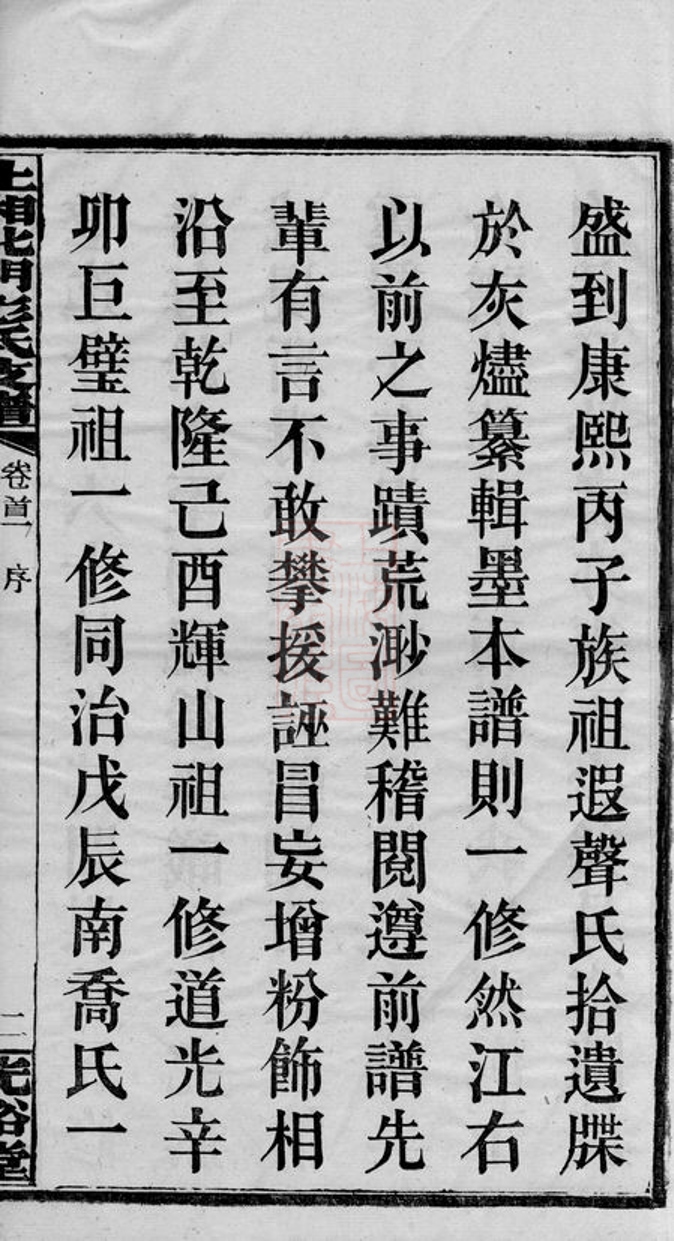 盛到康熙丙子族祖遐聲氏拾遺牒
於灰燼纂輯墨本譜則一修然江右
以前之事蹟荒渺難稽閱遵前譜先
輩有言不敢攀援誣冒妄增粉飾相
沿至乾隆己酉輝山祖一修道光辛
卯巨璧祖一修同治戊辰南喬氏一
上湘北門彭氏支譜
卷首一 序
二
光裕堂